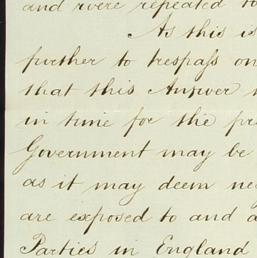 and were repeated to
As this is
further to trespass on
that this Answer
in time for the pre
Government may be
as it may deem ne
are exposed to and a
Parties in England